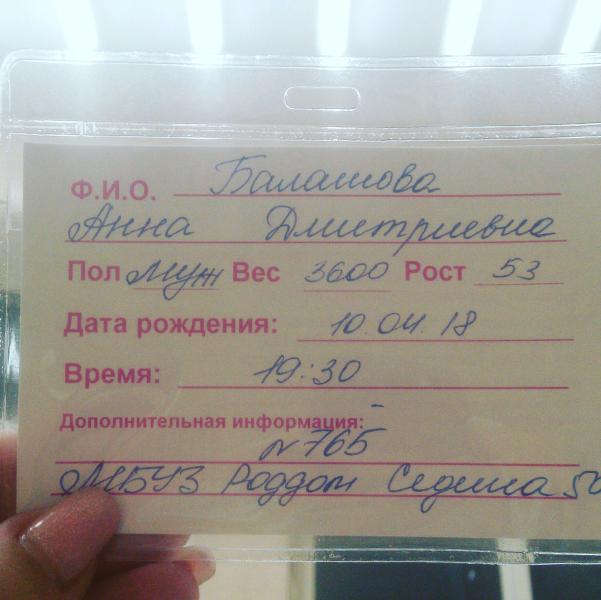 Ф.И.О. Балашова
Анна Дмитриевна
Пол Муж Вес 3600 Рост 53
Дата рождения: 10.04.18
Время: 19:30
Дополнительная информация:
№765
МБУЗ Роддом Седина 50